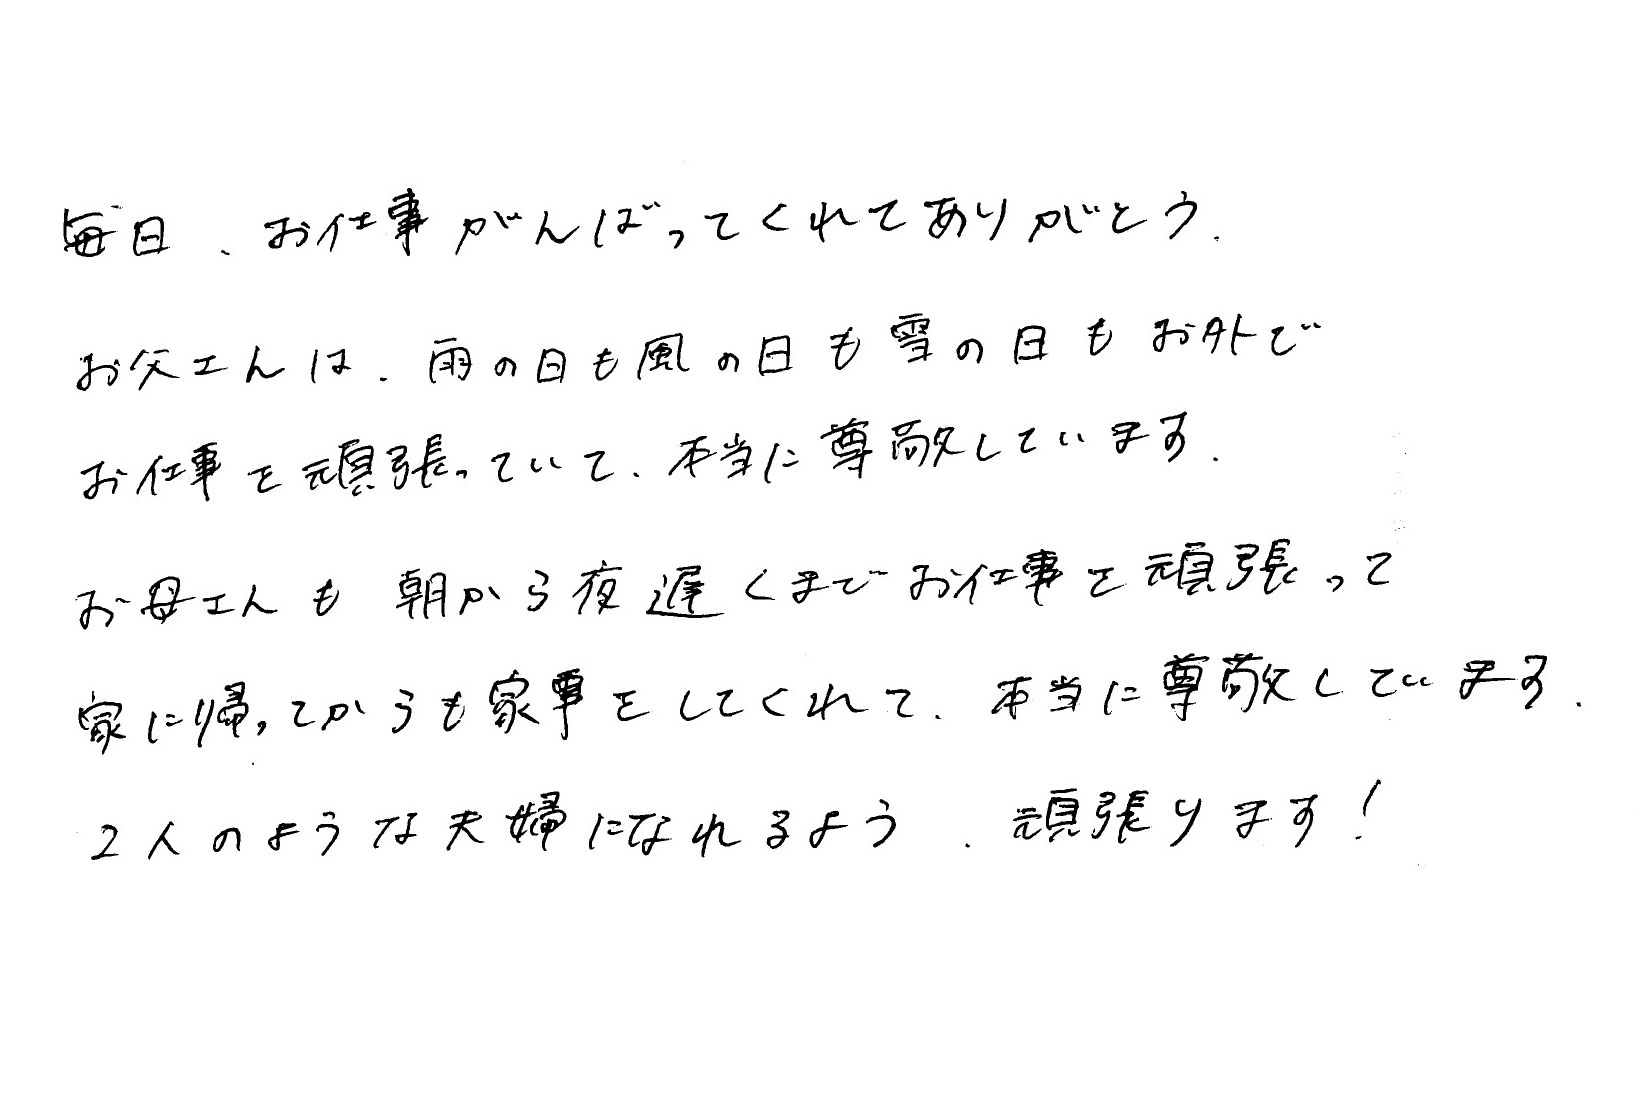 毎日、お仕事がんばってくれてありがとう。
お父さんは、雨の日も風の日も雪の日もお外で
お仕事を頑張っていて、本当に尊敬しています。
お母さんも朝から夜遅くまでお仕事を頑張って
家に帰ってからも家事をしてくれて、本当に尊敬しています。
2人のような夫婦になれるよう、頑張ります!